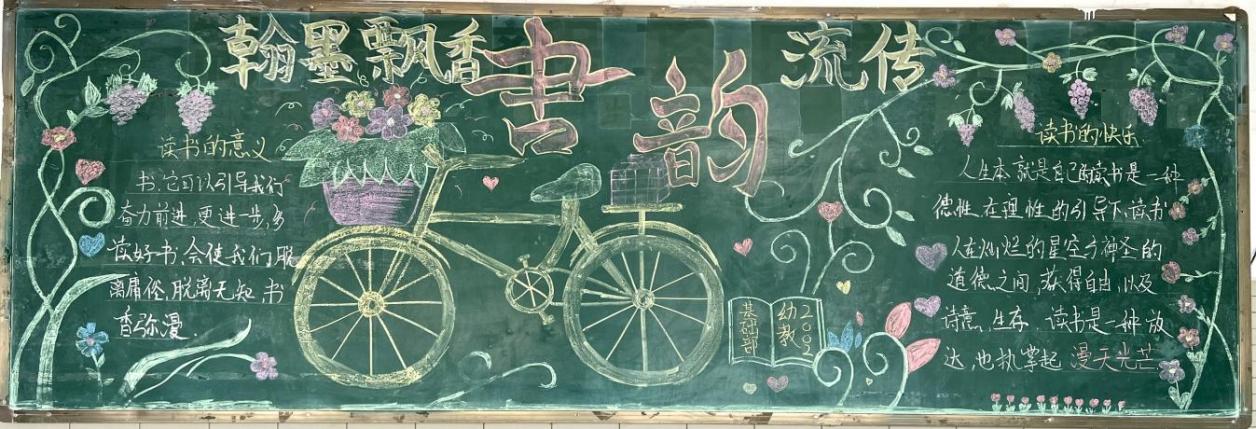 翰墨飘香 书韵 流传
读书的意义
书,它可以引导我们
奋力前进,更进一步,多
读好书,会使我们脱
离庸俗,脱离无知,书
香弥漫.
基础部
幼教
2002
读书的快乐
人生本就是自己的读书是一种
德性,在理性的引导下,读书
人在灿烂的星空与神圣的
道德之间,获得自由,以及
诗意,生存,读书是一种放
达,也执掌起 漫天光芒